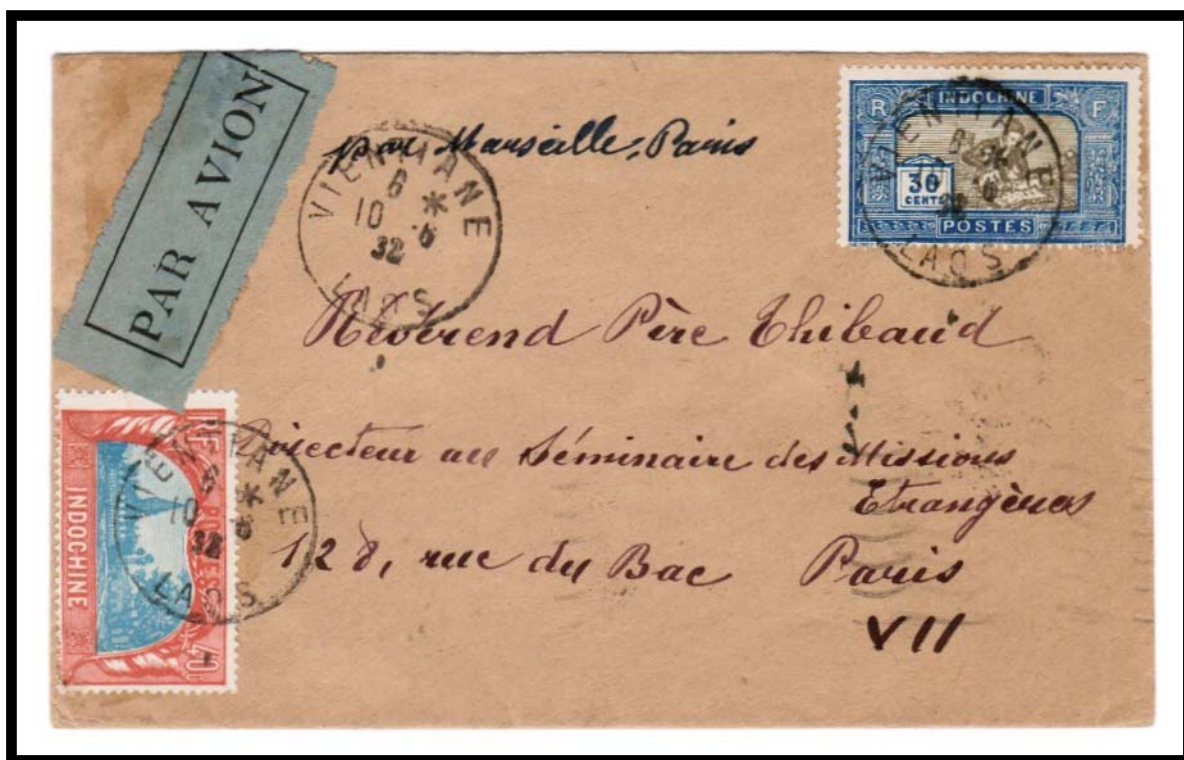 PAR AVION
par Marseille, Paris
VIENTIANE
6
10 * 6
32
LAOS
R INDOCHINE F
30
CENTS
POSTES
VIENTIANE
LAOS
Révérend Père Thibaud
Directeur au Séminaire des Missions
Etrangères
128, rue du Bac Paris
VII
RF
INDOCHINE
VIENTIANE
6
10 * 6
32
LAOS